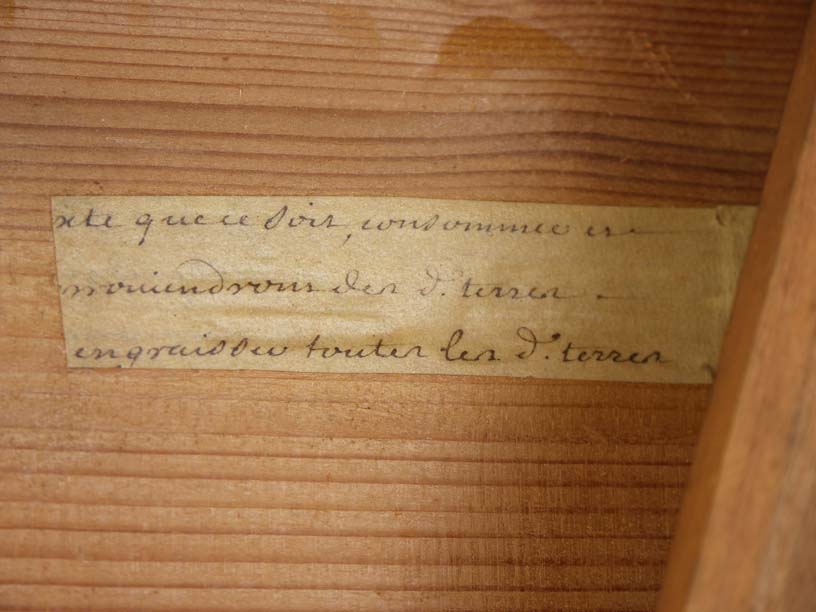 xte que ce soit, consommee et
proviendront des d. terres
engraisser toutes les d. terres